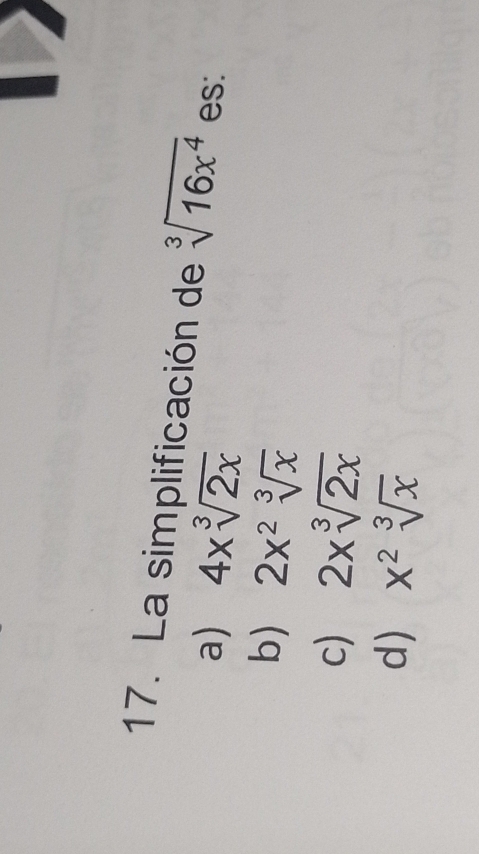 17. La simplificación de ∛16x⁴ es:
a) 4x∛2x
b) 2x² ∛x
c) 2x∛2x
d) x² ∛x